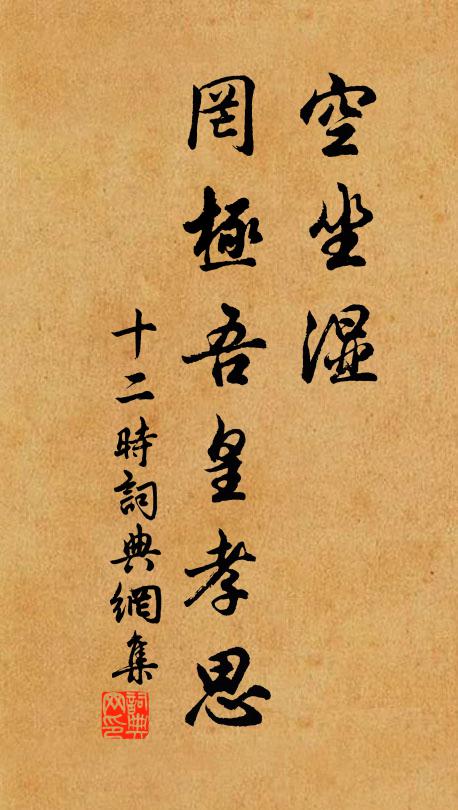 空坐濕
罔極吾皇孝思
十二時詞典網集
詞典网印